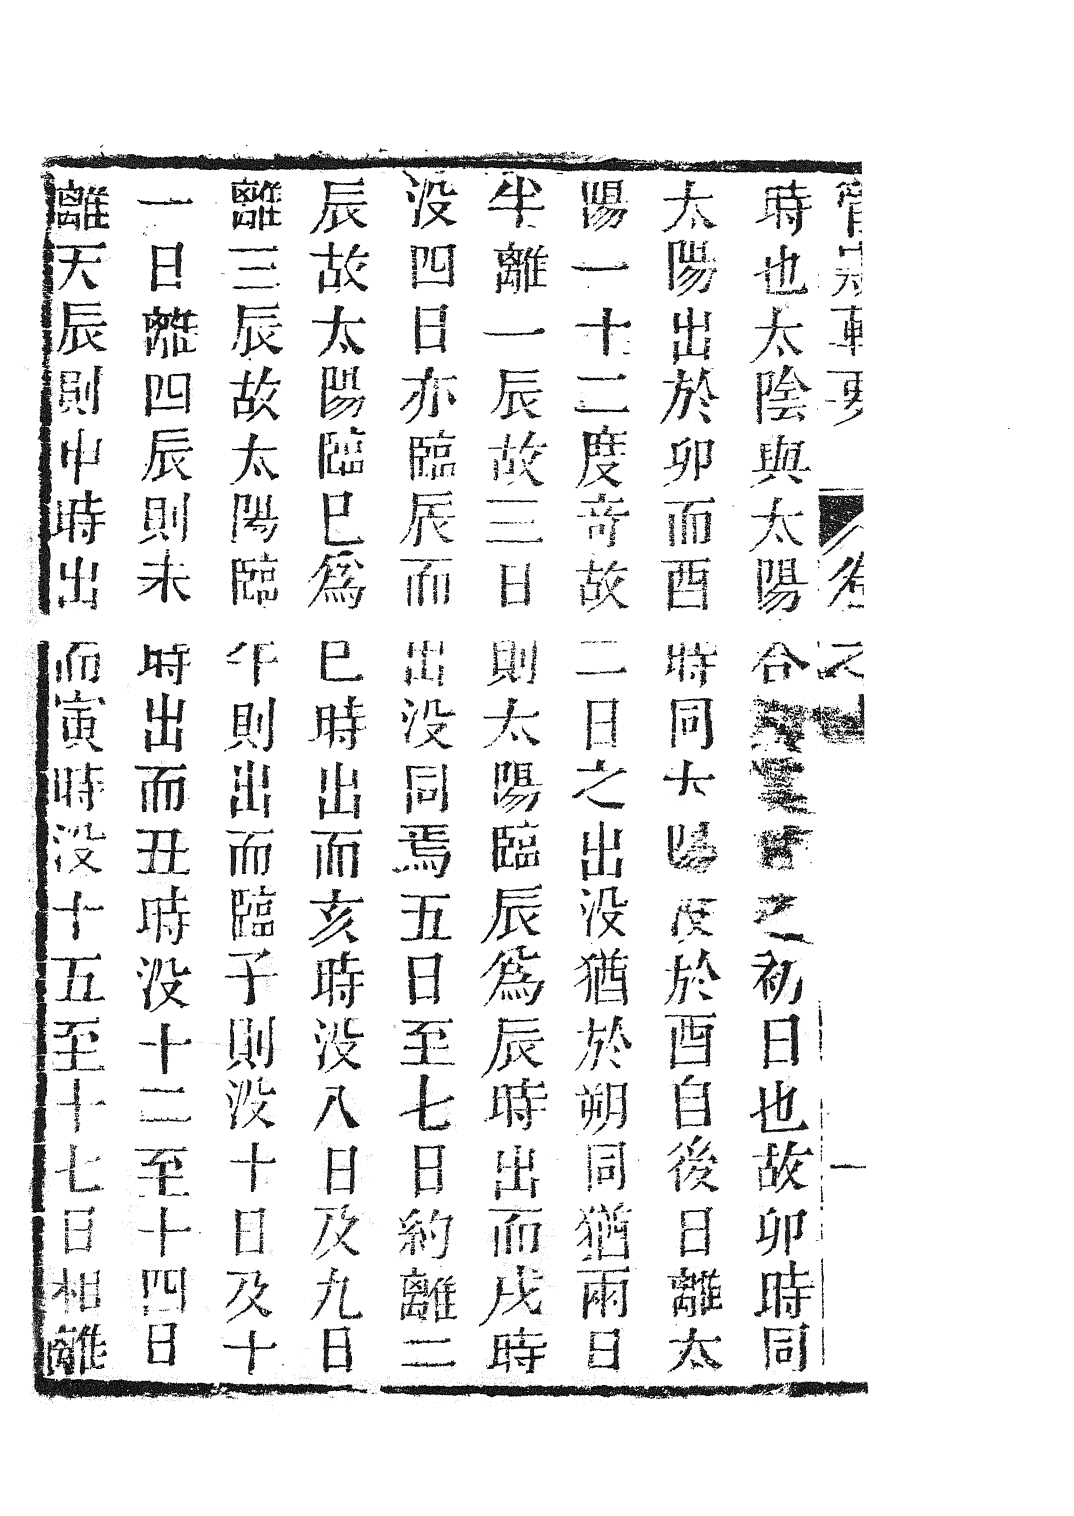 時也太陰與太陽合之初日也故卯時同
太陽出於卯而酉時同太陽没於酉自後日離太
陽一十二度奇故二日之出没猶於朔同猶兩日
半離一辰故三日則太陽臨辰爲辰時出而戌時
没四日亦臨辰而出没同焉五日至七日約離二
辰故太陽臨巳爲巳時出而亥時没八日及九日
離三辰故太陽臨午則出而臨子則没十日及十
一日離四辰則未時出而丑時没十二至十四日
離天辰則申時出而寅時没十五至十七日相離